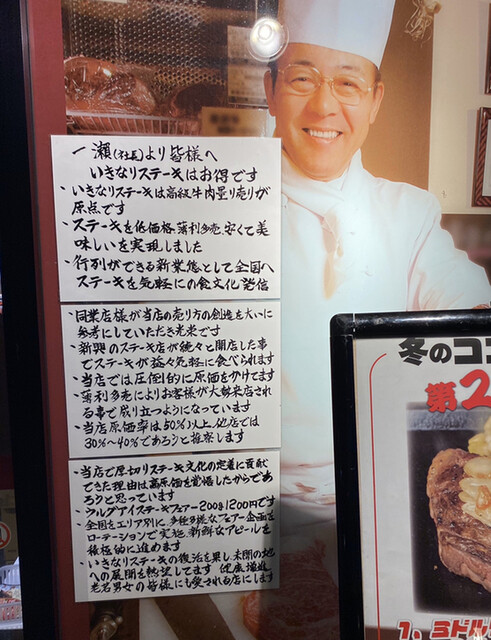 一瀬(社長)より皆様へ
いきなりステーキはお得です
・いきなりステーキは高級牛肉量り売りが
原点です
・ステーキを低価格薄利多売安くて美
味しいを実現しました
・行列ができる新業態として全国へ
ステーキを気軽にの食文化発信
・同業店様が当店の売り方の創造を大いに
参考にしていただき光栄です
・新興のステーキ店が続々と開店した事
でステーキが益々気軽に食べられます
・当店では圧倒的に原価をかけてます
薄利多売によりお客様が大勢来店され
る事で成り立つようになっています
・当店原価率は60%以上、他店では
30%〜40%であろうと推察します
・当店で厚切りステーキ文化の定着に貢献
できた理由は高原価を覚悟したからであ
ろうと思っています
・ウルグアイステーキフェアー200g1200円です
・全国をエリア別に、多種多様なフェアー企画を
ローテーションで実施、新鮮なアピールを
積極的に進めます
・いきなりステーキの復活を果し、未開の地
への展開を熱望してます 健康増進
老若男女の皆様にも愛される店にします
冬のココ
第2
1、ミドル